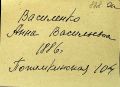 Василенко
Анна Васильевна
1886г.
Потемкинская 104